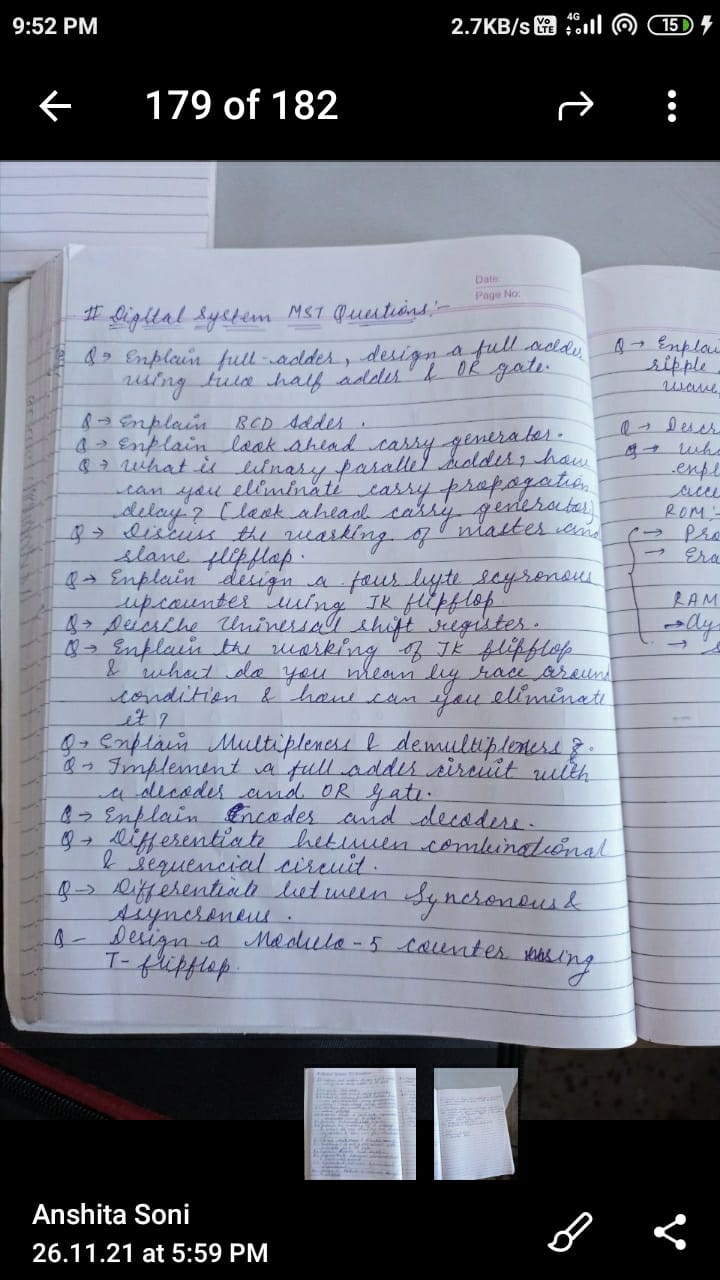 9:52 PM
2.7KB/s Vo LTE 4G 15
179 of 182
Date:
Page No:
# Digital System MST Questions:-
Q→ Explain full-adder, design a full adder
using two half adder & OR gate.
Q→ Explain BCD Adder.
Q→ Explain look ahead carry generator.
Q→ What is binary parallel adder, how
can you eliminate carry propogation
delay? (look ahead carry generator)
Q→ Discuss the working of master and
slave flipflop.
Q→ Explain design a four byte scyronous
upcounter using JK flipflop
Q→ Describe Universal shift register.
Q→ Explain the working of JK flipflop
& what do you mean by race around
condition & how can you eliminate
it?
Q→ Explain Multiplexers & demultiplexers
Q→ Implement a full adder circuit with
a decoder and OR gate.
Q→ Explain Encoder and decoders.
Q→ Differentiate between combinational
& sequencial circuit.
Q→ Differentiate between Syncronous &
Asyncronous.
Q- Design a Modulo-5 counter using
T-flipflop.
Q→ Explai
ripple
wave,
Q→ Descr
Q→ Wh
expl
acce
ROM:-
→ Pro
→ Era
RAM
→ dy
→ s
Anshita Soni
26.11.21 at 5:59 PM